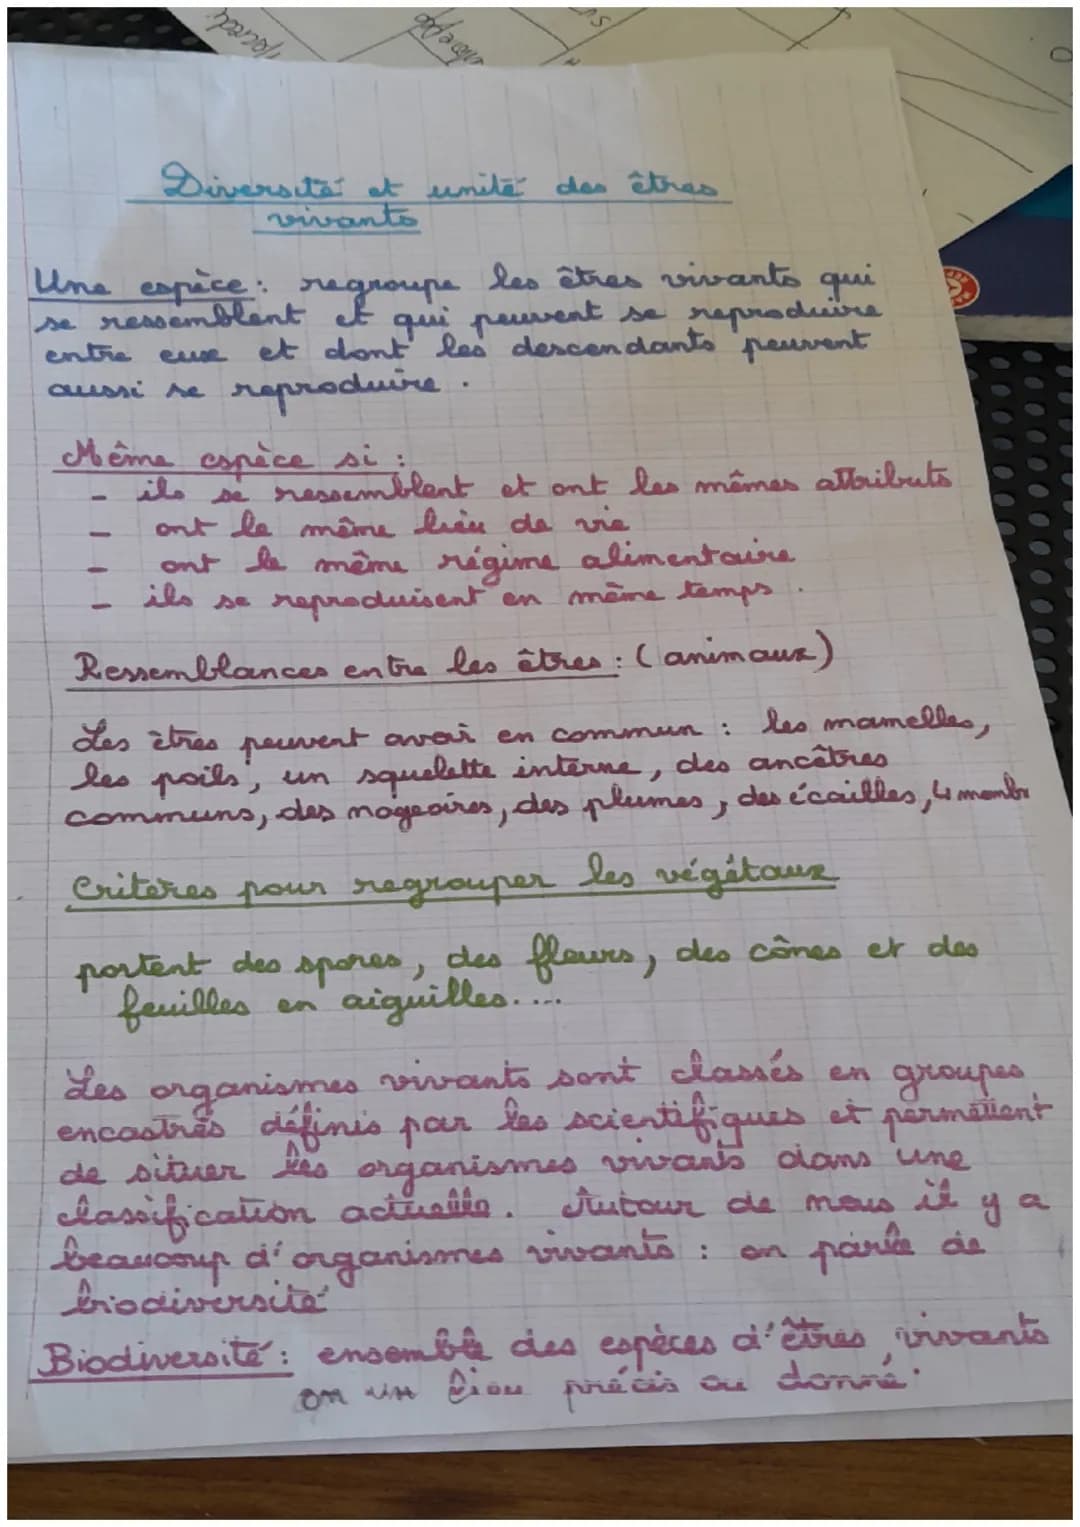 Diversité et unité des êtres
vivants
Une espèce : regroupe les êtres vivants qui
se ressemblent et qui peuvent se reproduire
entre eux et dont les descendants peuvent
aussi se reproduire .
Même espèce si :
- ils se ressemblent et ont les mêmes attributs
- ont le même lieu de vie
- ont le même régime alimentaire
- ils se reproduisent en même temps .
Ressemblances entre les êtres : ( animaux )
Les êtres peuvent avoir en commun : les mamelles,
les poils, un squelette interne, des ancêtres
communs, des nageoires, des plumes, des écailles, 4 membr
Critères pour regrouper les végétaux
portent des spores, des fleurs, des cônes et des
feuilles en aiguilles....
Les organismes vivants sont classés en groupes
encastrés définis par les scientifiques et permettent
de situer les organismes vivants dans une
classification actuelle. Autour de nous il y a
beaucoup d'organismes vivants : on parle de
biodiversité
Biodiversité : ensemble des espèces d'êtres vivants
en un lieu précis ou donné.